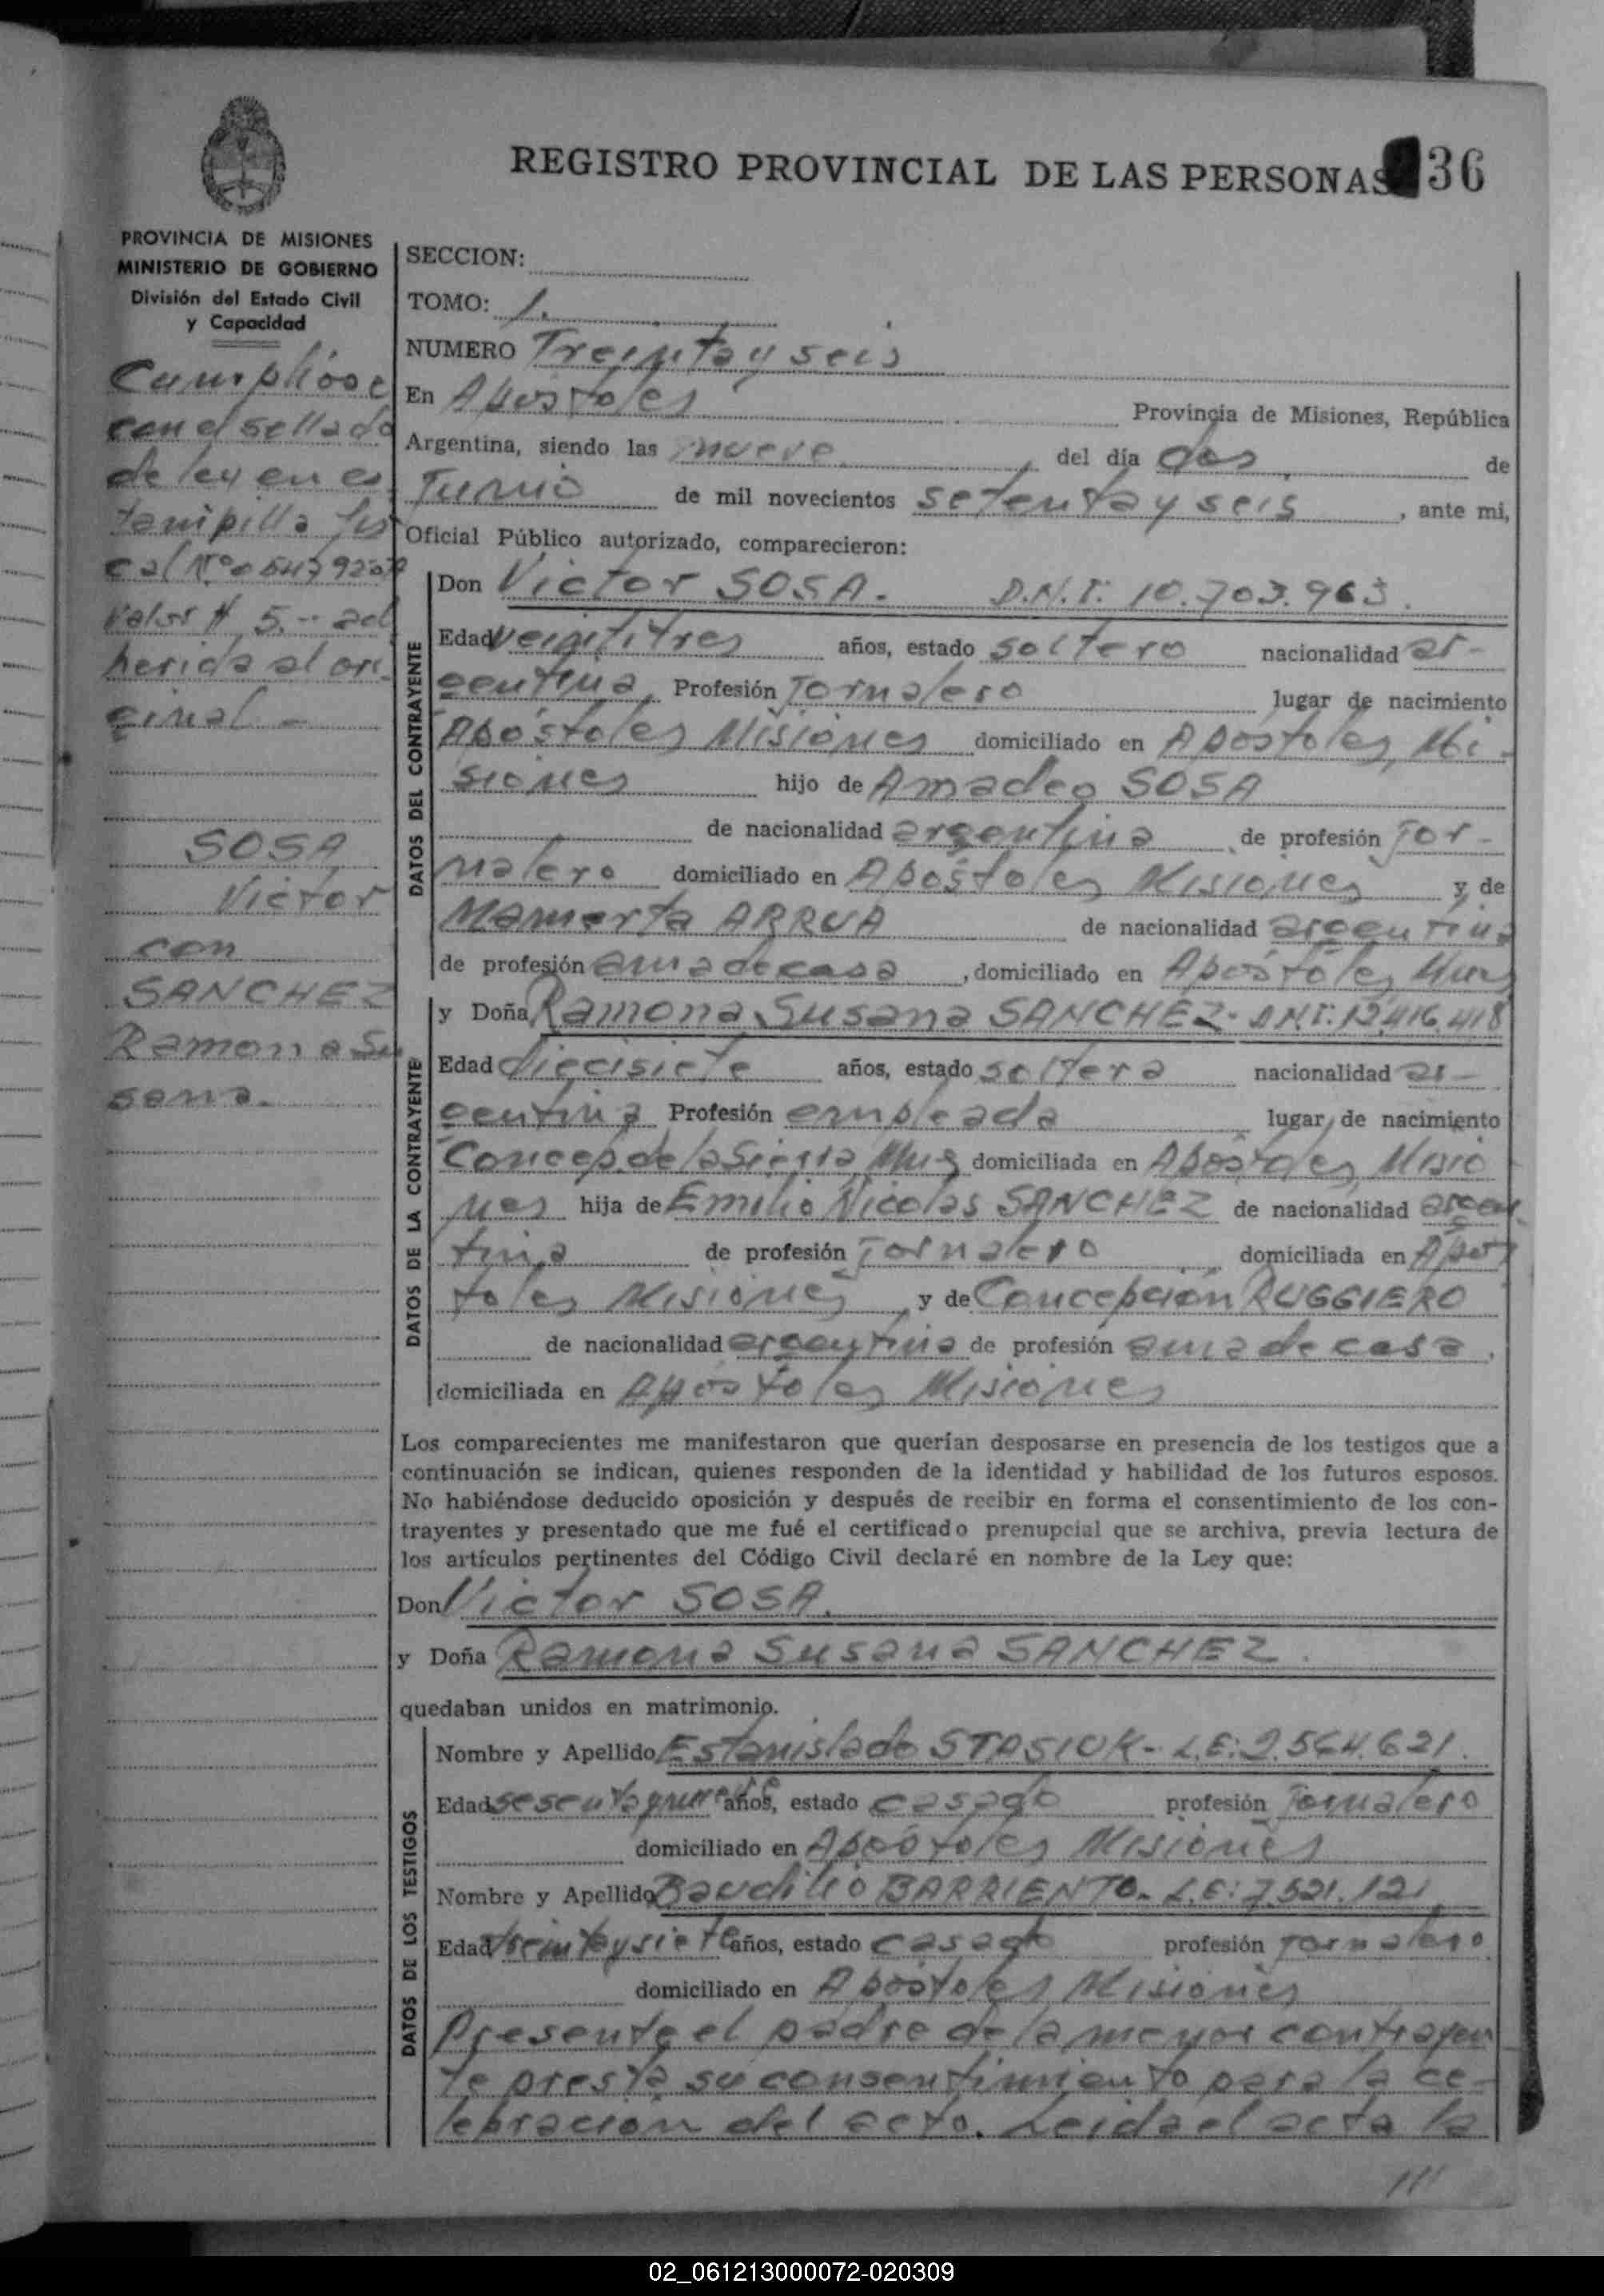 REGISTRO PROVINCIAL DE LAS PERSONAS 36
PROVINCIA DE MISIONES
MINISTERIO DE GOBIERNO
División del Estado Civil
y Capacidad
Cumplióse
con el sellado
de ley en es
tampilla fis
cal Nº
valor $ 5.- ad
herida al ori
ginal -
SOSA
Victor
con
SANCHEZ
Ramona Su
sana.
SECCION:
TOMO: 1.
NUMERO Treinta y seis
En Apóstoles Provincia de Misiones, República
Argentina, siendo las nueve del día dos de
Junio de mil novecientos setenta y seis, ante mi,
Oficial Público autorizado, comparecieron:
DATOS DEL CONTRAYENTE
Don Victor SOSA. D.N.I: 10.703.963.
Edad veintitres años, estado soltero nacionalidad ar-
gentina, Profesión Jornalero lugar de nacimiento
Apóstoles Misiones domiciliado en Apóstoles, Mi-
siones hijo de Amadeo SOSA
de nacionalidad argentina de profesión Jor-
nalero domiciliado en Apóstoles Misiones y de
Mamerta ARRUA de nacionalidad argentina
de profesión ama de casa, domiciliado en Apóstoles Mnes
DATOS DE LA CONTRAYENTE
y Doña Ramona Susana SANCHEZ- DNI: 12.416.418
Edad diecisiete años, estado soltera nacionalidad ar-
gentina Profesión empleada lugar de nacimiento
Concep. de la Sierra, Mns domiciliada en Apóstoles, Misio
nes hija de Emilio Nicolas SANCHEZ de nacionalidad argen
tina de profesión Jornalero domiciliada en Apos
toles Misiones, y de Concepción RUGGIERO
de nacionalidad argentina de profesión ama de casa,
domiciliada en Apóstoles Misiones
Los comparecientes me manifestaron que querían desposarse en presencia de los testigos que a
continuación se indican, quienes responden de la identidad y habilidad de los futuros esposos.
No habiéndose deducido oposición y después de recibir en forma el consentimiento de los con-
trayentes y presentado que me fué el certificado prenupcial que se archiva, previa lectura de
los artículos pertinentes del Código Civil declaré en nombre de la Ley que:
Don Victor SOSA.
y Doña Ramona Susana SANCHEZ.
quedaban unidos en matrimonio.
DATOS DE LOS TESTIGOS
Nombre y Apellido Estanislado STASIUK- L.E: 2.564.621.
Edad sesenta y nueve años, estado casado profesión Jornalero
domiciliado en Apóstoles Misiones
Nombre y Apellido Baudilio BARRIENTO- L.E: 7.521.121
Edad treinta y siete años, estado casado profesión Jornalero
domiciliado en Apóstoles Misiones
Presente el padre de la menor contrayen
te presta su consentimiento para la ce-
lebración del acto. Leida el acta la
///
02_061213000072-020309